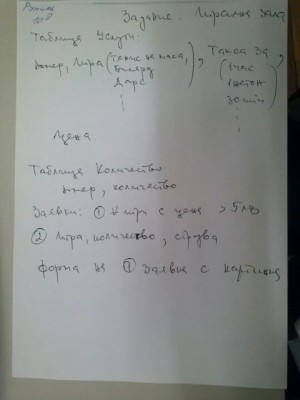 Задание: Игрална зала
Таблица Услуги:
номер, Игра (тенис на маса, Такса за (1час
билярд 1жетон
Дарс 30 мин
цена
Таблица Количество
номер, количество
Заявки: ① игри с цена > 5 лв
② Игра, количество, струва
форма на ① Заявка с картинка